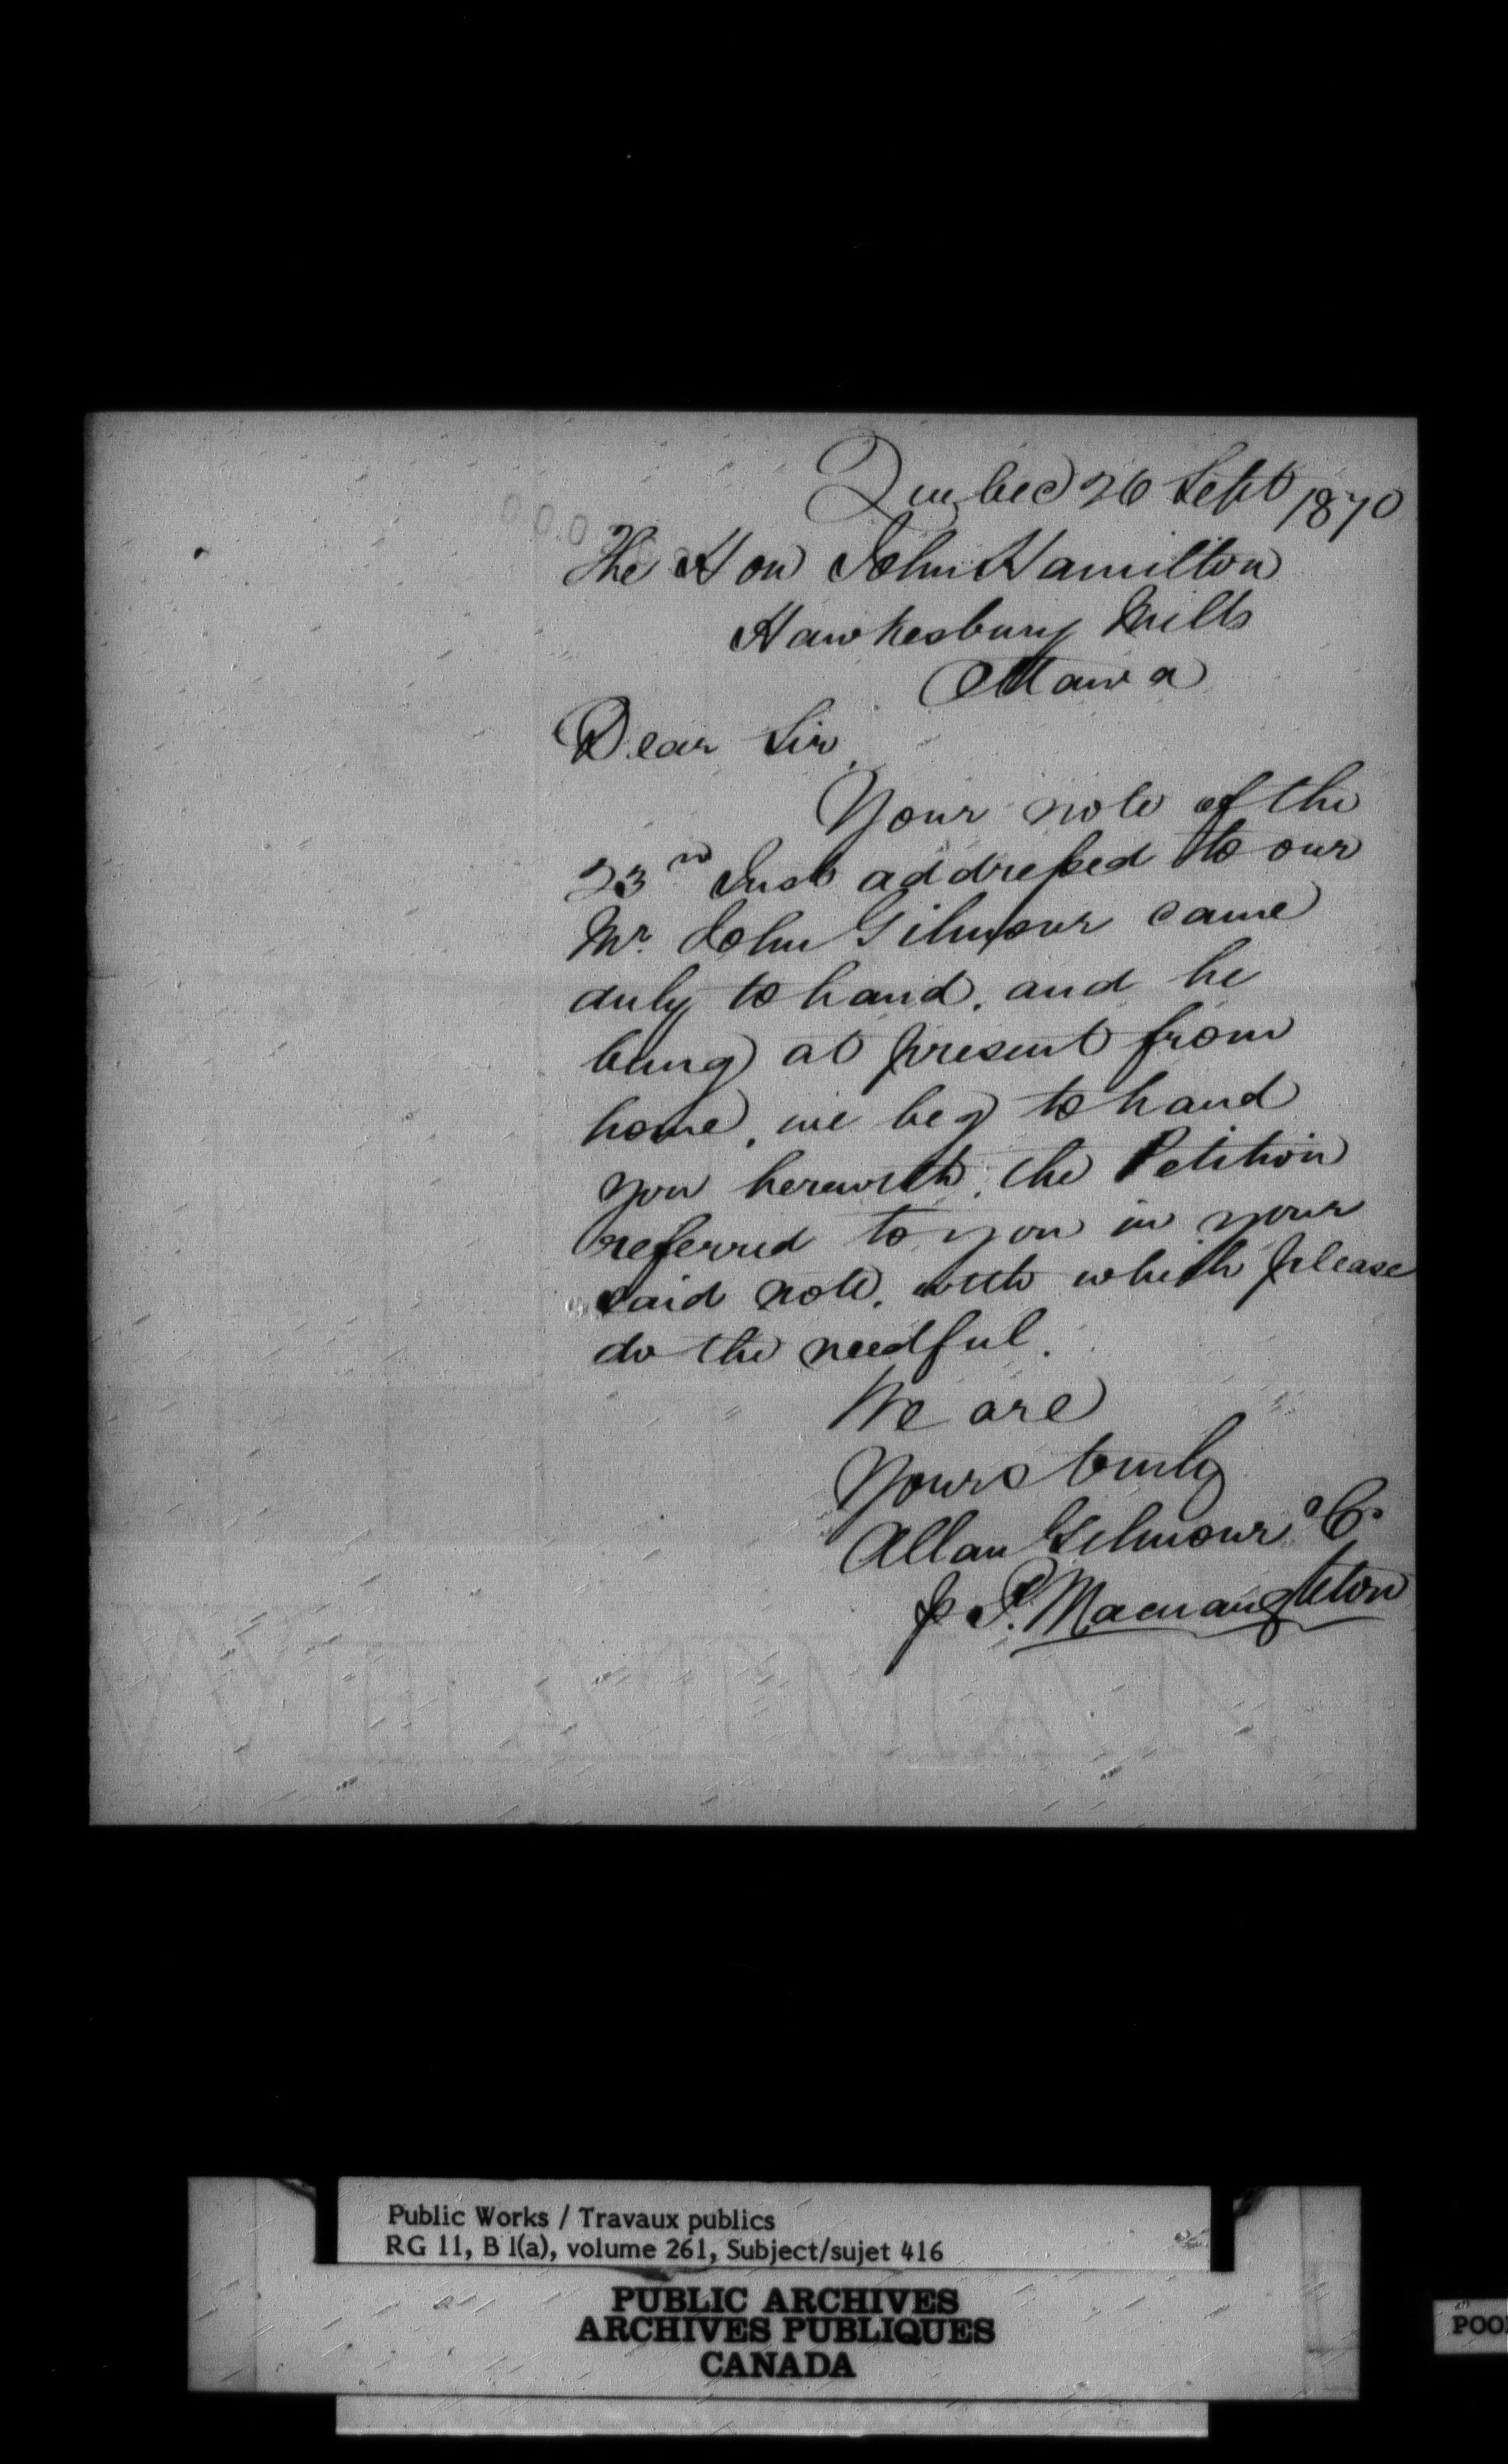 Quebec 26 Sept 1870
The Hon John Hamilton
Hawkesbury Mills
Ottawa
Dear Sir,
Your note of the
23rd Inst addressed to our
Mr. John Gilmour came
duly to hand, and he
being at present from
home, we beg to hand
you herewith, the Petition
referred to you in your
said note, with which please
do the needful.
We are
Yours truly
Allan Gilmour & Co
p P. Macnaughton
Public Works / Travaux publics
RG 11, B 1(a), volume 261, Subject/sujet 416
PUBLIC ARCHIVES
ARCHIVES PUBLIQUES
CANADA